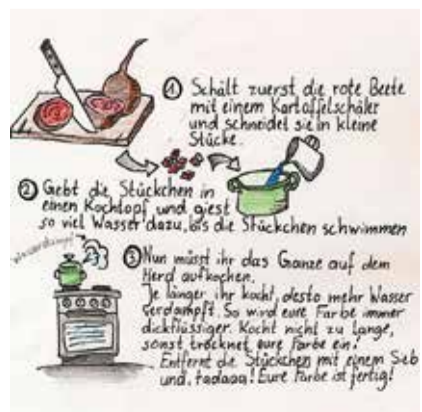 ① Schält zuerst die rote Beete
mit einem Kartoffelschäler
und schneidet sie in kleine
Stücke.
② Gebt die Stückchen in
einen Kochtopf und giest
so viel Wasser dazu, bis die Stückchen schwimmen
Wasserdampf
③ Nun müsst ihr das Ganze auf dem
Herd aufkochen.
Je länger ihr kocht, desto mehr Wasser
verdampft. So wird eure Farbe immer
dickflüssiger. Kocht nicht zu lange,
sonst trocknet eure Farbe ein!
Entfernt die Stückchen mit einem Sieb
und, tadaaa! Eure Farbe ist fertig!